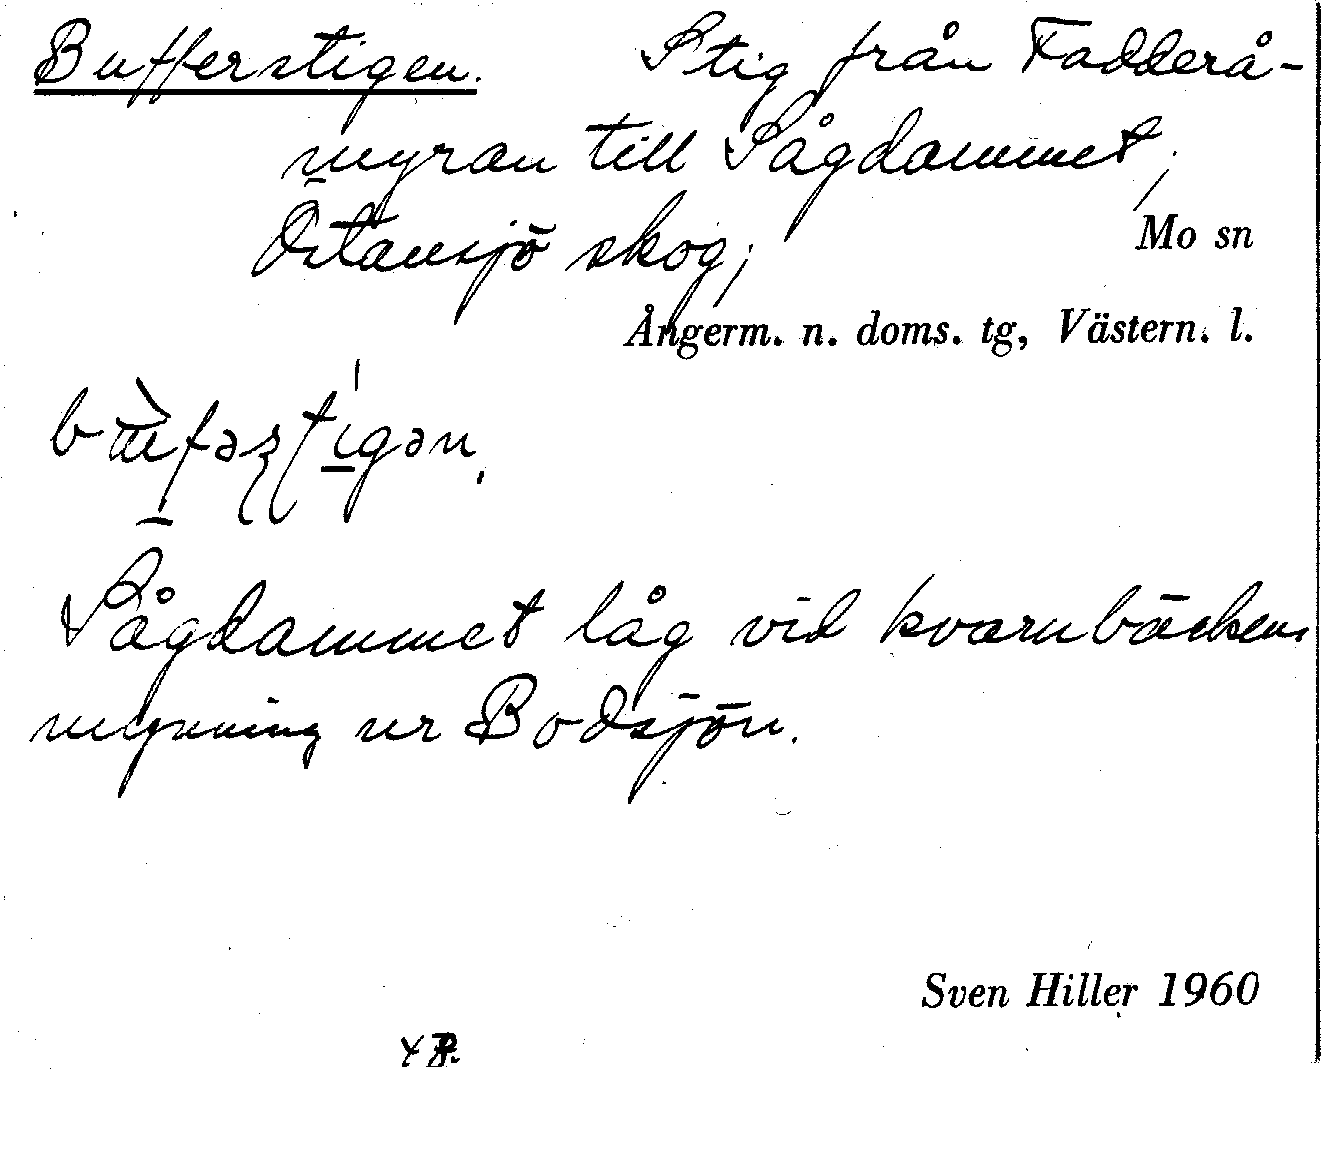 Bufferstigen. Stig från Fadderå-
myran till Sågdammet,
Östansjö skog,
Mo sn
Ångerm. n. doms. tg, Västern. l.
Sågdammet låg vid kvarnbäckens
mynning ur Bodsjön.
Sven Hiller 1960